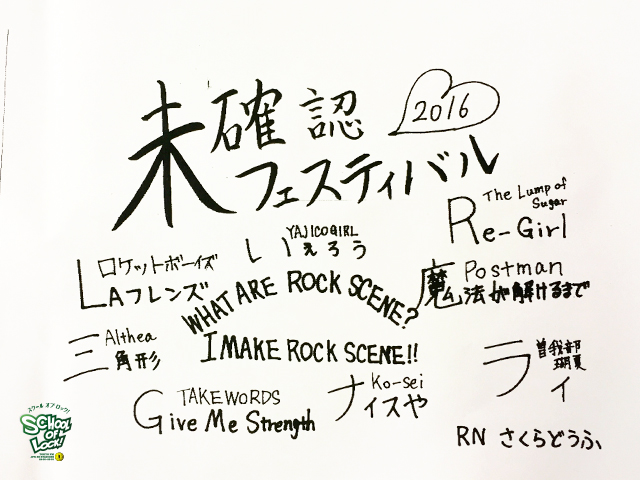 未確認
2016
フェスティバル
The Lump of
Sugar
Re-Girl
YAJICOGIRL
いえろう
ロケットボーイズ
LAフレンズ
WHAT ARE ROCK SCENE?
Postman
魔法が解けるまで
Althea
三角形
I MAKE ROCK SCENE!!
曽我部
瑚夏
ライ
TAKEWORDS
Give Me Strength
Ko-sei
ナイスや
スクール オブ ロック!
SCHOOL
OF
LOCK!
RN さくらどうふ